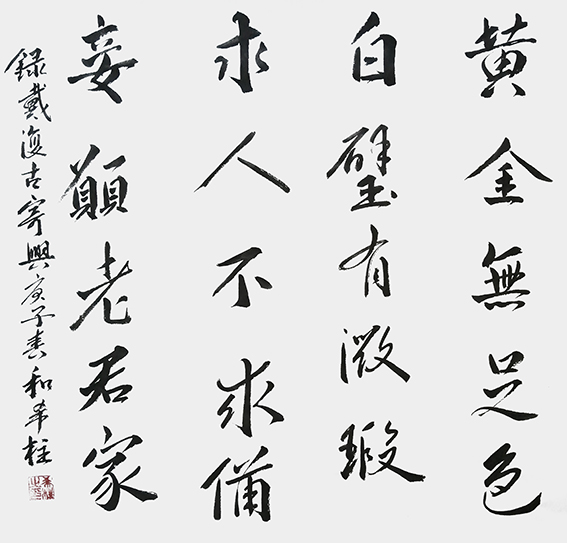 黄金無足色
白璧有微瑕
求人不求備
妾願老君家
録戴復古寄興庚子春和希柱